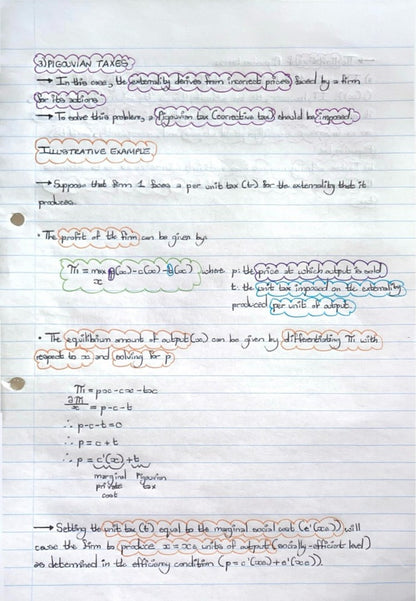 3) PIGOUVIAN TAXES
→ In this case, the externality derives from incorrect prices faced by a firm
for its actions
→ To solve this problem, a Pigouvian tax (corrective tax) should be imposed.
ILLUSTRATIVE EXAMPLE
→ Suppose that firm 1 faces a per unit tax (t) for the externality that it
produces.
• The profit of the firm can be given by:
π₁ = max p(x) - c(x) - t(x) where p: the price at which output is sold
x
t: the unit tax imposed on the externality
produced per unit of output.
• The equilibrium amount of output (x) can be given by differentiating π₁ with
respects to x and solving for p
π₁ = px - cx - tx
∂π₁/∂x = p - c - t
∴ p - c - t = 0
∴ p = c + t
∴ p = c'(x) + t
marginal Pigouvian
private tax
cost
→ Setting the unit tax (t) equal to the marginal social cost (e'(xe)) will
cause the firm to produce x = xe units of output (socially-efficient level)
as determined in the efficiency condition (p = c'(xe) + e'(xe)).